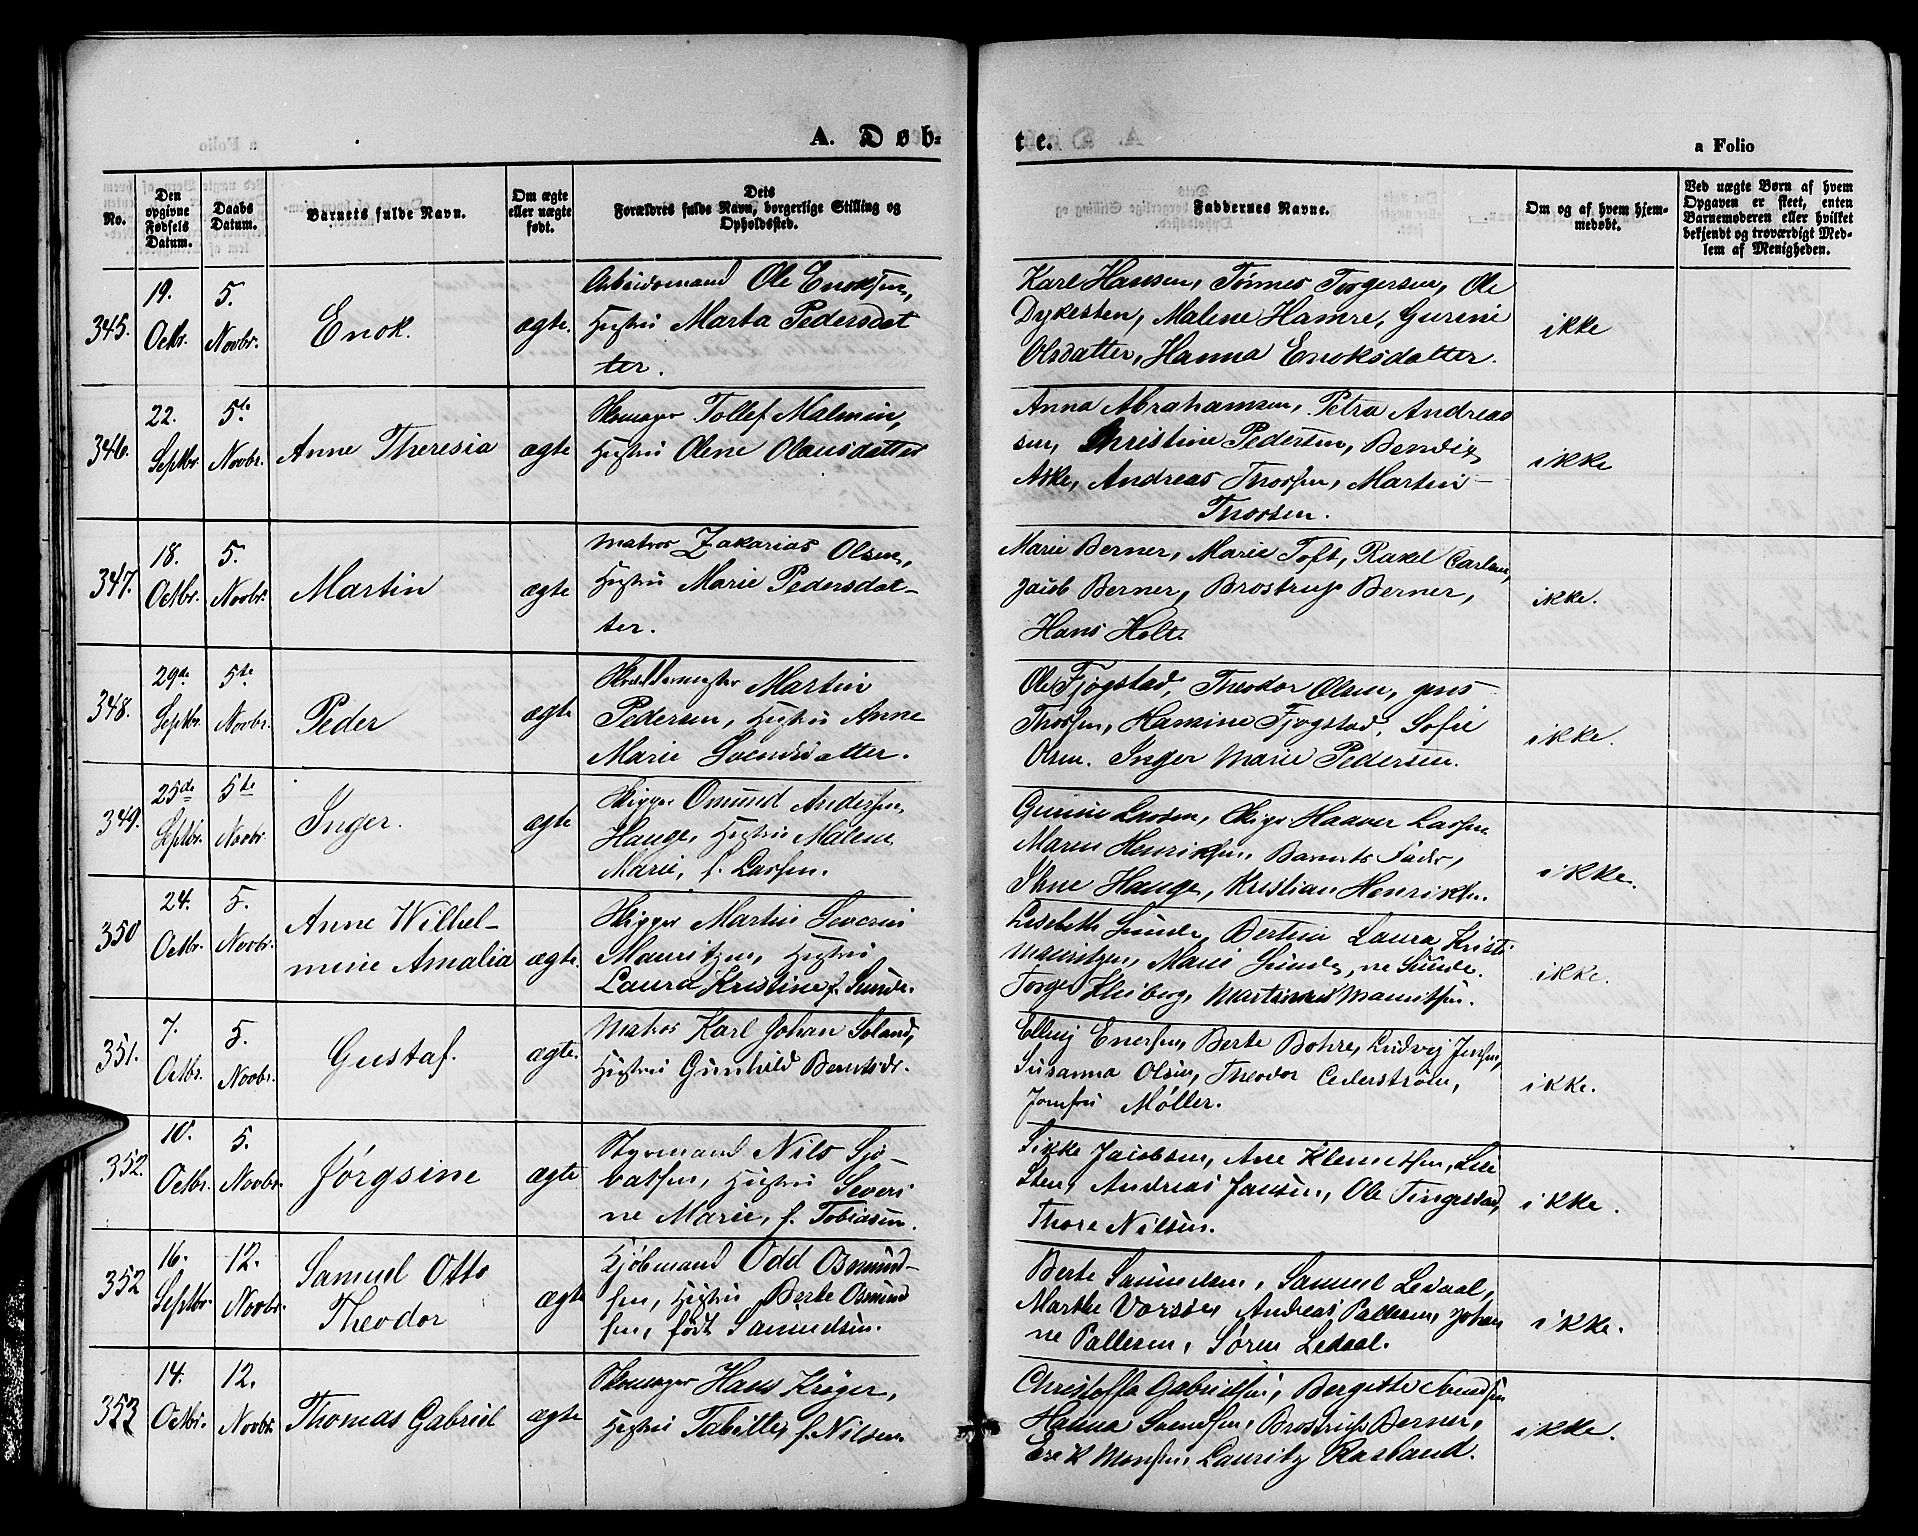 A. Døb=
te.
a Folio
No.
Den opgivne Fødsels Datum.
Daabs Datum.
Barnets fulde Navn.
Om ægte eller uægte født.
Dets Forældres fulde Navn, borgerlige Stilling og Opholdssted.
Faddernes Navne.
Om og af hvem hjemmedøbt.
Ved uægte Børn af hvem Opgaven er skeet, enten Barnemoderen eller hvilket bekjendt og troværdigt Medlem af Menigheden.
345. 19. Octbr. 5. Novbr. Enok. ægte.
Arbeidsmand Ole Enoksen,
Hustru Marta Pedersdat
ter.
Karl Hansen, Tønnes Torgersen, Ole
Dykesten, Malene Hamre, Gurine
Olsdatter, Hanna Enoksdatter.
ikke
346. 22. Septbr. 5te Novbr. Anne Theresia ægte
Skomager Tollef Malmin,
Hustru Olene Olausdatter
Anna Abrahamsen, Petra Andreas
sen, Christine Pedersen, Bendix
Aske, Andreas Thorsen, Martin
Thorsen.
ikke
347. 18. Octbr. 5. Novbr. Martin ægte
Matros Zakarias Olsen,
Hustru Marie Pedersdat-
ter.
Marie Berner, Marie Toft, Rakel Carlsen,
Jacob Berner, Brostrup Berner,
Hans Holte
ikke.
348. 29de Septbr. 5te Novbr. Peder ægte
Skræddermester Martin
Pedersen, Hustru Anne
Marie Svendsdatter.
Ole Fjøgstad, Theodor Olsen, Jens
Thorsen, Hamine Fjøgstad, Sofie
Olsen. Inger Marie Pedersen.
ikke.
349. 25de Septbr. 5te Novbr Inger. ægte
Skipper Omund Andersen
Hauge, Hustru Malene
Marie, f. Larsen.
Gurine Larsen, Haaver Larsen
Maren Henriksen, Barnets Fader,
Hauge, Kristian Henriksen.
ikke.
350 24. Octbr. 5. Novbr. Anne Wilhel-
mine Amalia ægte.
Skipper Martin Severin
Mauritzen, Hustru
Laura Kristine f. Sunde.
Lisebeth Sunde, Bertine Laura Kristi
Mauritzen, Marie Sunde, ne Sunde.
Torger Kleiberg, Martinus Mauritsen.
ikke.
351. 7. Octbr. 5. Novbr. Gustaf. ægte.
Matros Karl Johan Soland,
Hustru Gunhild Berntsdr.
Elling Enersen, Berte Bohre, Ludvig Jensen,
Susanna Olsen, Theodor Cederstrøm,
Jomfru Møller.
ikke.
352. 10. Octbr. 5. Novbr. Jørgsine ægte
Styrmand Nils Sjø-
vatsen, Hustru Severi
ne Marie, f. Tobiasen.
Sikke Jacobsen, Ane Klemetsen, Lise
Sten, Andreas Jansen, Ole Tingestad,
Thore Nilsen.
ikke.
352 16. Septbr. 12. Novbr. Samuel Otto
Theodor ægte
Kjøbmand Odd Osmund-
sen, Hustru Berte Osmund
sen, født Samuelsen.
Berte Samuelsen, Samuel Ledaal,
Marthe Vorsøe, Andreas Pallesen, Johan
ne Pallesen, Søren Ledaal.
ikke.
353 14. Octbr. 12. Novbr. Thomas Gabriel ægte
Skomager Hans Krøger,
Hustru Tabitte, f. Nilsen.
Christoffa Gabrielsen, Bergitte
Hanna Svendsen, Brostrup Berner,
Erik Monsen, Lauritz Rasband.
ikke.